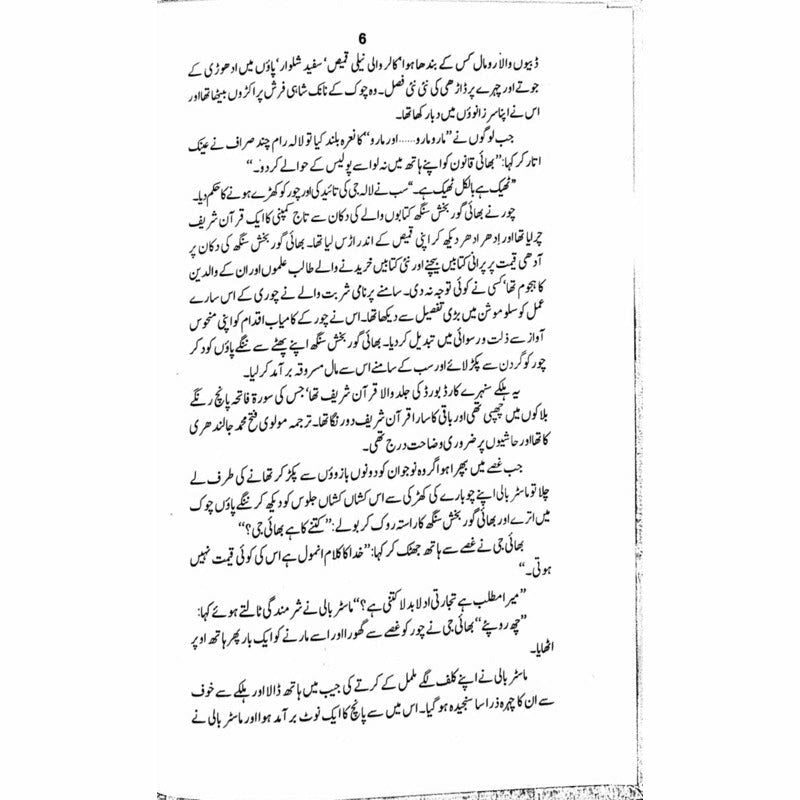 6
ڈبیوں والا رومال کس کے بندھا ہوا‘ کالر والی نیلی قمیص‘ سفید شلوار‘ پاؤں میں ادھوڑی کے
جوتے اور چہرے پر ڈاڑھی کی نئی نئی فصل۔ وہ چوک کے نانک شاہی فرش پر اکڑوں بیٹھا تھا اور
اس نے اپنا سر زانوؤں میں دبا رکھا تھا۔
جب لوگوں نے ”مارو مارو......اور مارو“ کا نعرہ بلند کیا تو لالہ رام چند صراف نے عینک
اتار کر کہا: ”بھائی قانون کو اپنے ہاتھ میں نہ لو اسے پولیس کے حوالے کر دو۔“
”ٹھیک ہے بالکل ٹھیک ہے۔“ سب نے لالہ جی کی تائید کی اور چور کو کھڑے ہونے کا حکم دیا۔
چور نے بھائی گور بخش سنگھ کتابوں والے کی دکان سے تاج کمپنی کا ایک قرآن شریف
چرا لیا تھا اور اِدھر ادھر دیکھ کر اپنی قمیص کے اندر اڑس لیا تھا۔ بھائی گور بخش سنگھ کی دکان پر
آدھی قیمت پر پرانی کتابیں بیچنے اور نئی کتابیں خریدنے والے طالب علموں اور ان کے والدین
کا ہجوم تھا‘ کسی نے کوئی توجہ نہ دی۔ سامنے پر نامی شربت والے نے چوری کے اس سارے
عمل کو سلو موشن میں بڑی تفصیل سے دیکھا تھا۔ اس نے چور کے کامیاب اقدام کو اپنی منحوس
آواز سے ذلت و رسوائی میں تبدیل کر دیا۔ بھائی گور بخش سنگھ اپنے پھٹے سے ننگے پاؤں کود کر
چور کو گردن سے پکڑ لائے اور سب کے سامنے اس سے مال مسروقہ برآمد کر لیا۔
یہ ہلکے سنہرے کارڈ بورڈ کی جلد والا قرآن شریف تھا‘ جس کی سورۃ فاتحہ پانچ رنگے
بلاکوں میں چھپی تھی اور باقی کا سارا قرآن شریف دو رنگا تھا۔ ترجمہ مولوی فتح محمد جالندھری
کا تھا اور حاشیوں پر ضروری وضاحت درج تھی۔
جب غصے میں بپھرا ہوا گروہ نوجوان کو دونوں بازوؤں سے پکڑ کر تھانے کی طرف لے
چلا تو ماسٹر بالی اپنے چوبارے کی کھڑکی سے اس کشاں کشاں جلوس کو دیکھ کر ننگے پاؤں چوک
میں اترے اور بھائی گور بخش سنگھ کا راستہ روک کر بولے: ”کتنے کا ہے بھائی جی؟“
بھائی جی نے غصے سے ہاتھ جھٹک کر کہا: ”خدا کا کلام انمول ہے اس کی کوئی قیمت نہیں
ہوتی۔“
”میرا مطلب ہے تجارتی ادلا بدلا کتنی ہے؟“ ماسٹر بالی نے شرمندگی ٹالتے ہوئے کہا:
”چھ روپئے“ بھائی جی نے چور کو غصے سے گھورا اور اسے مارنے کو ایک بار پھر ہاتھ اوپر
اٹھایا۔
ماسٹر بالی نے اپنے کلف لگے ململ کے کرتے کی جیب میں ہاتھ ڈالا اور ہلکے سے خوف
سے ان کا چہرہ ذرا سا سنجیدہ ہو گیا۔ اس میں سے پانچ کا ایک نوٹ برآمد ہوا اور ماسٹر بالی نے